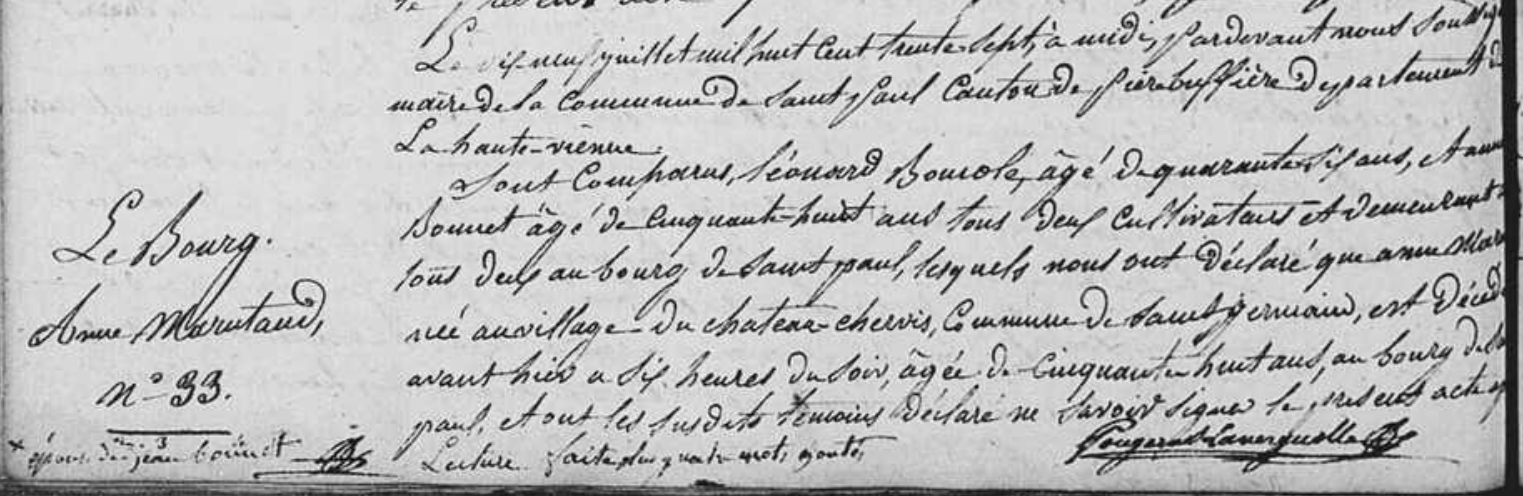 Le Bourg.
Anne Marutaud,
n.o 33.
+ épouse de jean bonnet
Le dix neuf juillet mil huit Cent trente-sept, à midi, pardevant nous Soussigné
maire de la Commune de Saint paul Canton de pierebuffière Departement de
La haute-vienne.
Sont Comparus, léonard Boucole, âgé de quarante-six ans, et
Bonnet âgé de Cinquante-huit ans tous deux Cultivateurs et demeurant
tous deux au bourg de Saint paul, lesquels nous ont déclaré que anne
née au village du chateau-chervix, Commune de Saint germain, est Décédée
avant hier a six heures du Soir, âgée de Cinquante huit ans, au bourg de
paul, et ont les susdits temoins Déclaré ne Savoir Signer le present acte
Lecture faite plus quatre mots ajoutés